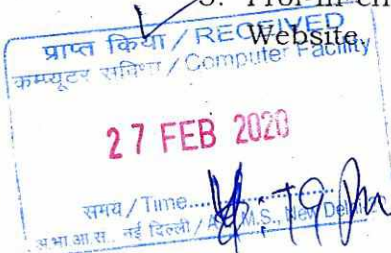 Website
प्राप्त किया / RECEIVED
कम्प्यूटर सुविधा / Computer Facility
27 FEB 2020
समय / Time
अ भा आ स., नई दिल्ली / A.I.I.M.S., New Delhi